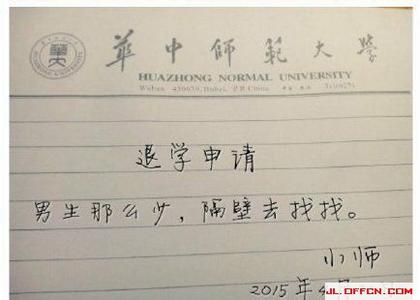 華中師範大學
HUAZHONG NORMAL UNIVERSITY
Wuhan 430079, Hubei, P.R.China
退学申请
男生那么少，隔壁去找找。
小师
2015年4
JL.OFFCN.COM